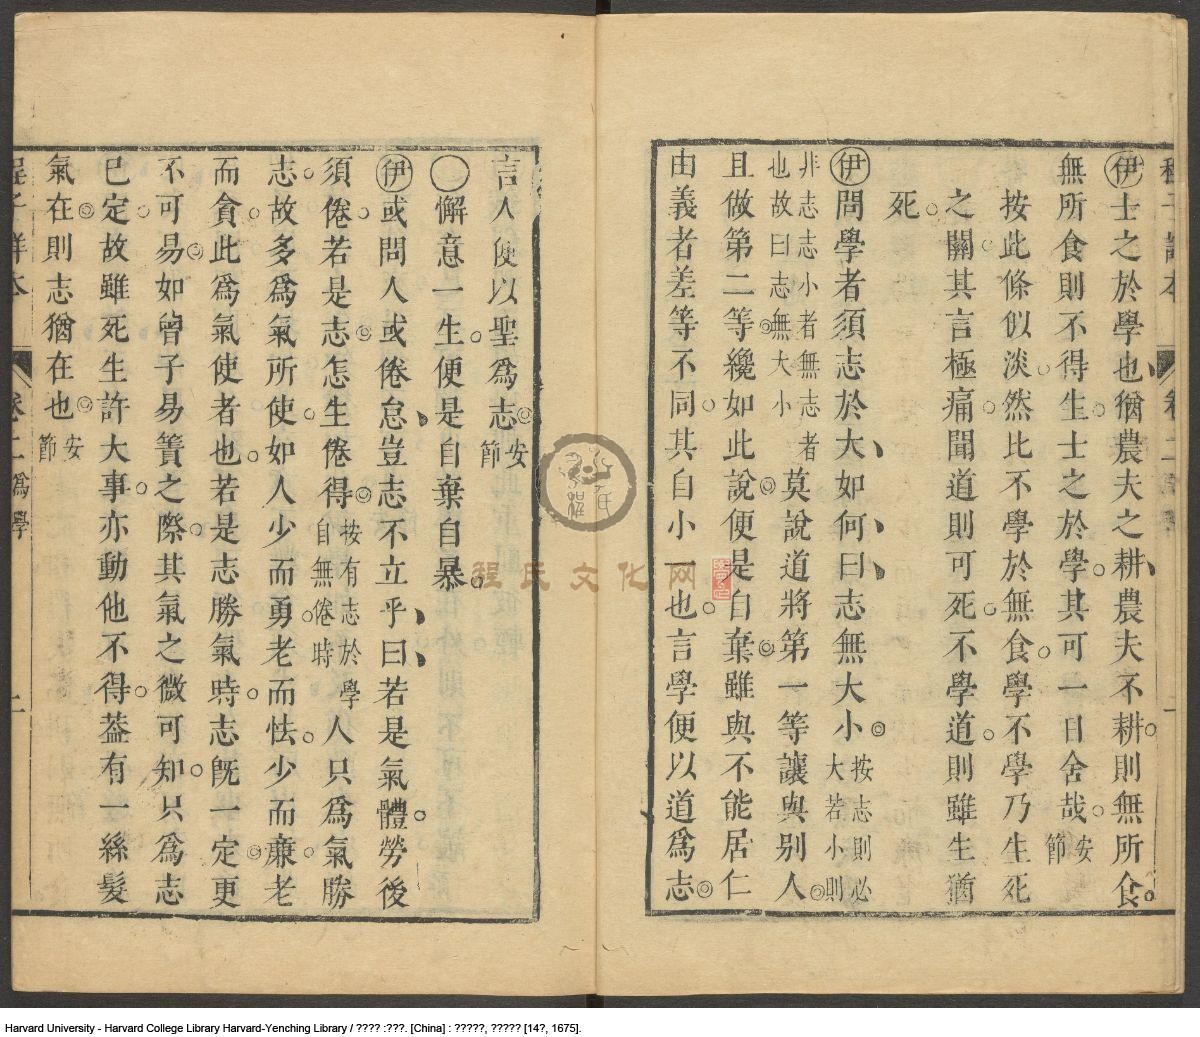 伊士之於學也猶農夫之耕農夫不耕則無所食
無所食則不得生士之於學其可一日舍哉安節
按此條似淡然比不學於無食學不學乃生死
之關其言極痛聞道則可死不學道則雖生猶
死
伊問學者須志於大如何曰志無大小按志則必大若小則
非志志小者無志也故曰志無大小者莫說道將第一等讓與別人
且做第二等纔如此說便是自棄雖與不能居仁
由義者差等不同其自小一也言學便以道爲志
言人便以聖爲志安節
懈意一生便是自棄自暴
伊或問人或倦怠豈志不立乎曰若是氣體勞後
須倦若是志怎生倦得按有志於學自無倦時人只爲氣勝
志故多爲氣所使如人少而勇老而怯少而廉老
而貪此爲氣使者也若是志勝氣時志既一定更
不可易如曾子易簀之際其氣之微可知只爲志
已定故雖死生許大事亦動他不得葢有一絲髮
氣在則志猶在也安節
程子詳本 卷二爲學 二
程氏文化网
Harvard University - Harvard College Library Harvard-Yenching Library / ???? :???. [China] : ?????, ????? [14?, 1675].